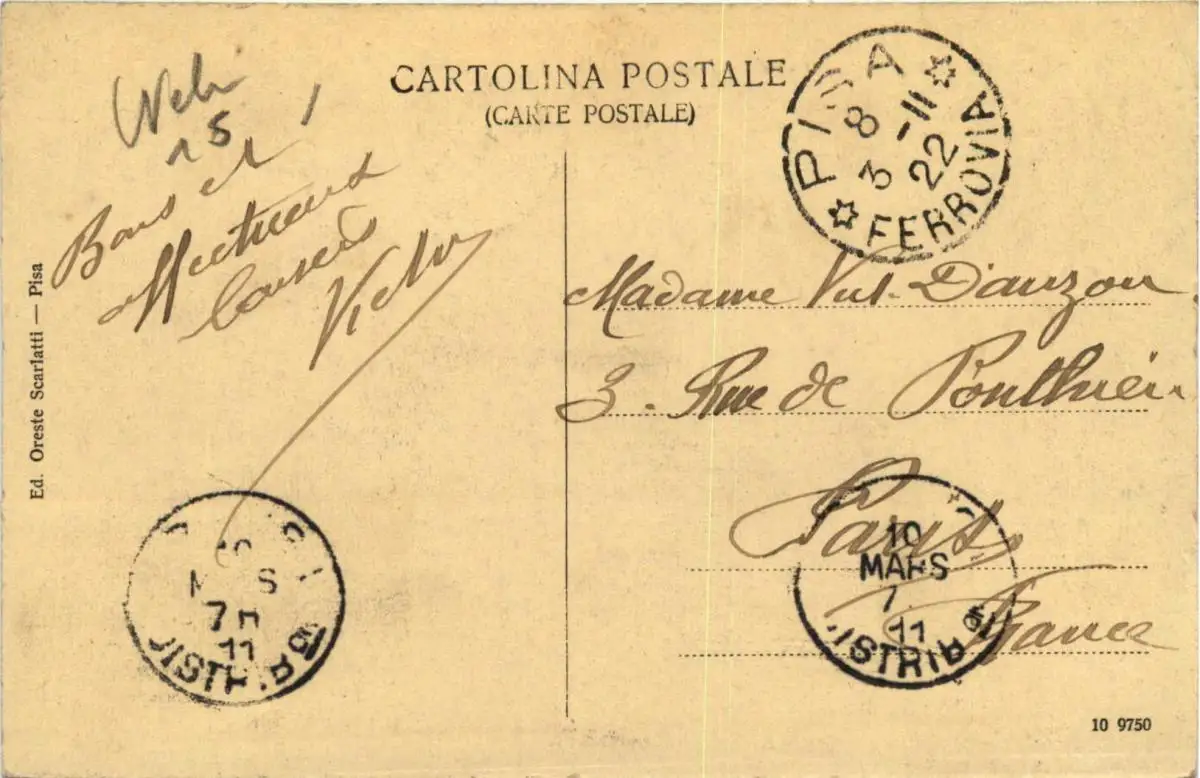 CARTOLINA POSTALE
(CARTE POSTALE)
PISA
8
3 - 11
22
FERROVIA
15
Bons et
affectueux
baisers
Ed. Oreste Scarlatti — Pisa
Madame Vut. D'auzon
3. Rue de Ponthieu
Paris
France
10
MARS
7
11
DISTRIB
MARS
7 H
11
DISTRIB
10 9750